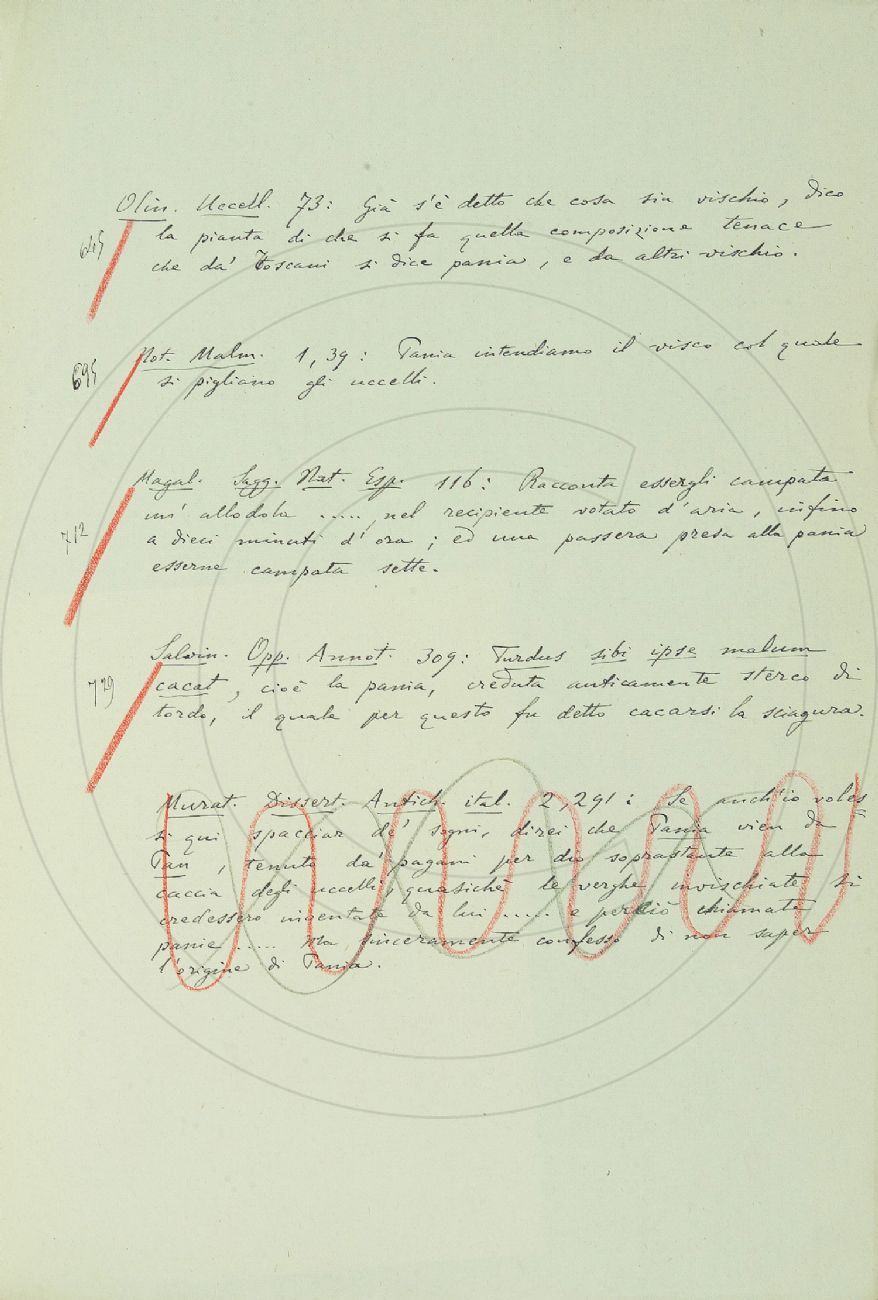 Olin. Uccell. 73: Già s'è detto che cosa sia vischio, dico
645
la pianta di che si fa quella composizione tenace
che da' Toscani si dice pania, e da altri vischio.
695
Not. Malm. 1, 39: Pania intendiamo il visco col quale
si pigliano gli uccelli.
Magal. Sagg. Nat. Esp. 116: Racconta essergli campata
712
un' allodola ..... nel recipiente votato d'aria, infino
a dieci minuti d'ora; ed una passera presa alla pania
esserne campata sette.
Salvin. Opp. Annot. 309: Turdus sibi ipse malum
729
cacat, cioè la pania, creduta anticamente sterco di
tordo, il quale per questo fu detto cacarsi la sciagura.
Murat. Dissert. Antich. ital. 2, 291: Se anch'io voles
si qui spacciar de' sogni, direi che Pania vien da
Pan, tenuto da' pagani per dio soprastante alla
caccia degli uccelli, quasichè le verghe invischiate si
credessero inventate da lui ..... e perciò chiamate
panie ..... Ma sinceramente confesso di non saper
l'origine di Pania.